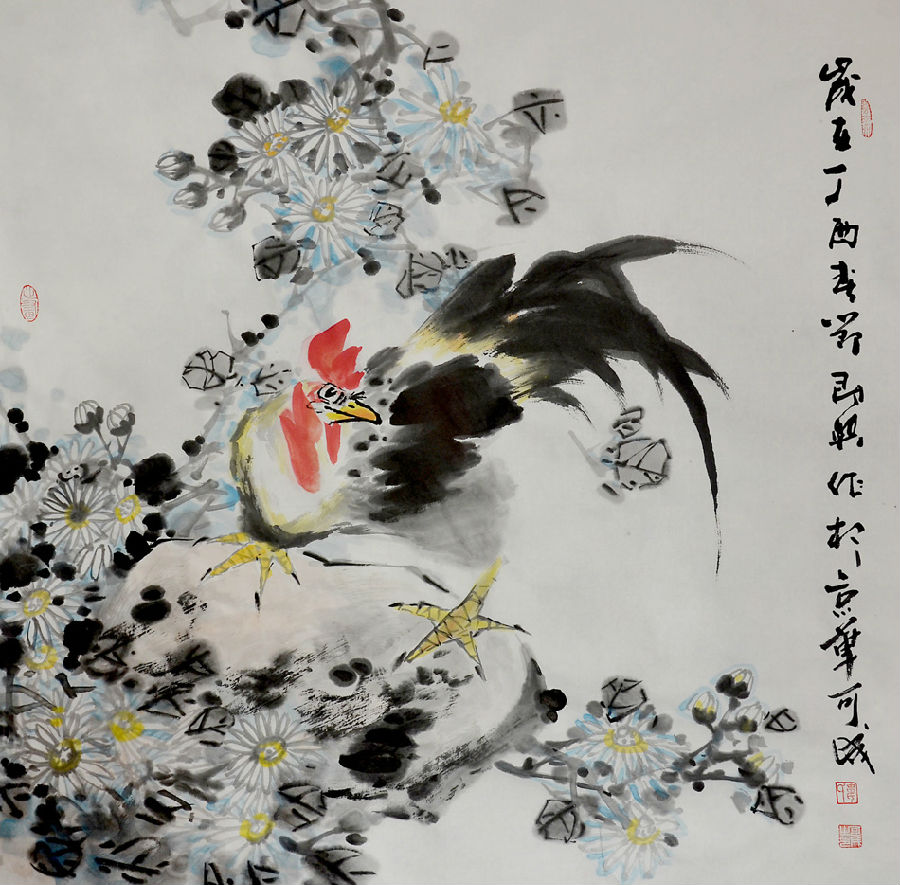 歲在丁酉春節即興作於京華可成